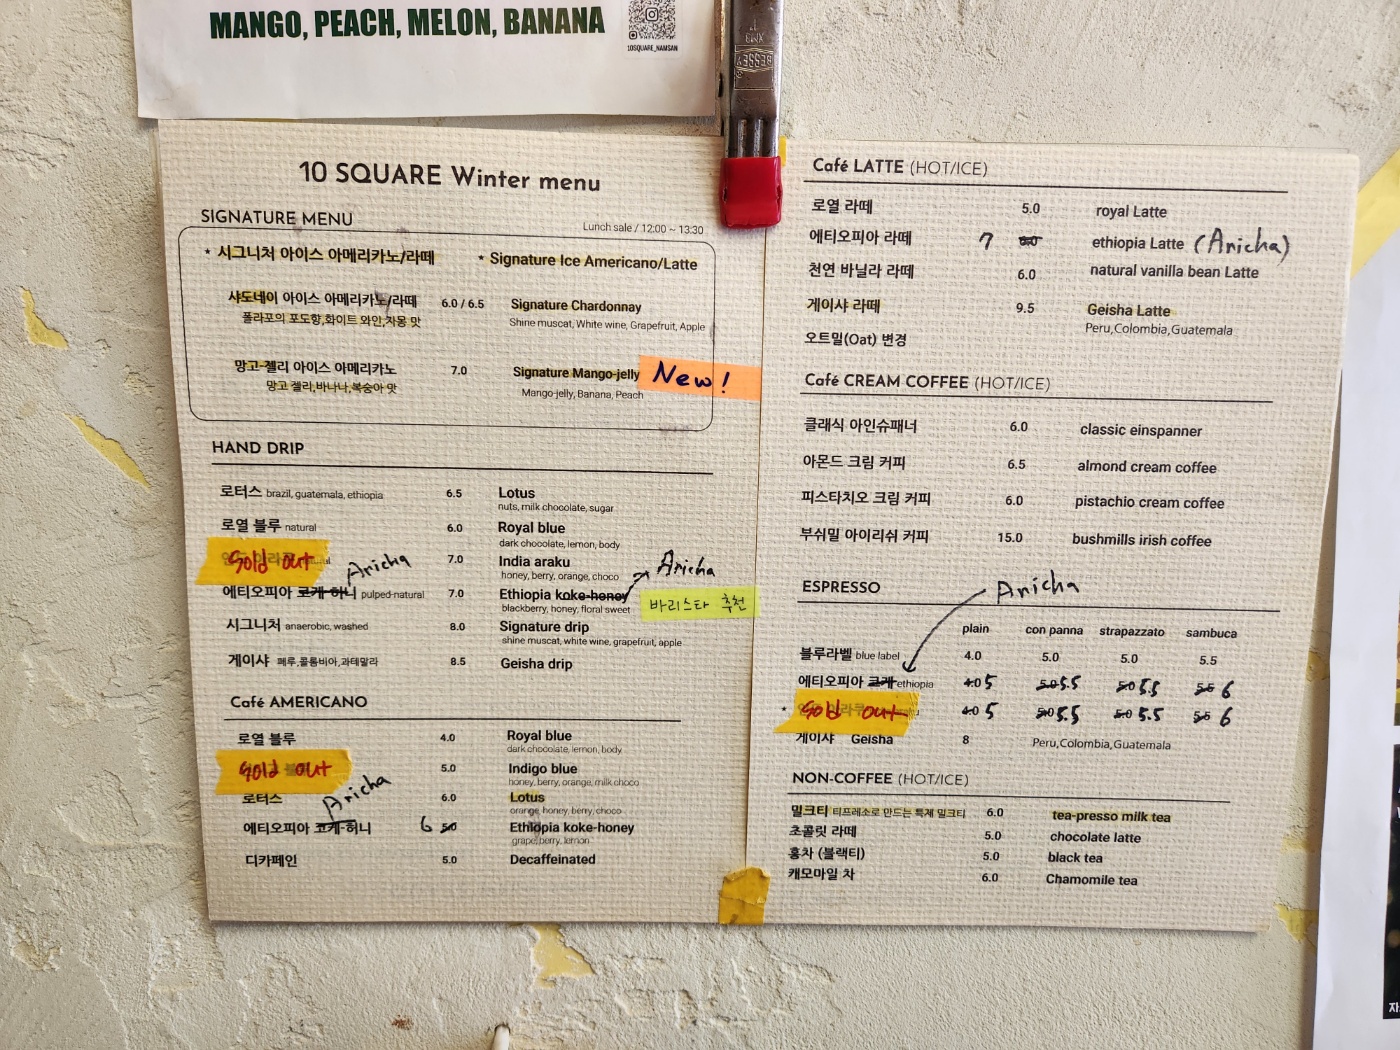 MANGO, PEACH, MELON, BANANA
10SQUARE_NAMSAN
BESSEY
10 SQUARE Winter menu
SIGNATURE MENU
Lunch sale / 12:00 ~ 13:30
* 시그니처 아이스 아메리카노/라떼 * Signature Ice Americano/Latte
샤도네이 아이스 아메리카노/라떼 6.0 / 6.5 Signature Chardonnay
폴라포의 포도향,화이트 와인,자몽 맛 Shine muscat, White wine, Grapefruit, Apple
망고-젤리 아이스 아메리카노 7.0 Signature Mango-jelly New!
망고 젤리,바나나,복숭아 맛 Mango-jelly, Banana, Peach
HAND DRIP
로터스 brazil, guatemala, ethiopia 6.5 Lotus
nuts, milk chocolate, sugar
로열 블루 natural 6.0 Royal blue
dark chocolate, lemon, body
Sold out 7.0 India araku
honey, berry, orange, choco
Aricha Aricha
에티오피아 코케-허니 pulped-natural 7.0 Ethiopia koke-honey
blackberry, honey, floral sweet 바리스타 추천
시그니처 anaerobic, washed 8.0 Signature drip
shine muscat, white wine, grapefruit, apple
게이샤 페루,콜롬비아,과테말라 8.5 Geisha drip
Café AMERICANO
로열 블루 4.0 Royal blue
dark chocolate, lemon, body
Sold out 5.0 Indigo blue
honey, berry, orange, milk choco
로터스 6.0 Lotus
orange, honey, berry, choco
Aricha
에티오피아 코케-허니 6 5.0 Ethiopia koke-honey
grape, berry, lemon
디카페인 5.0 Decaffeinated
Café LATTE (HOT/ICE)
로열 라떼 5.0 royal Latte
에티오피아 라떼 7 ethiopia Latte (Aricha)
천연 바닐라 라떼 6.0 natural vanilla bean Latte
게이샤 라떼 9.5 Geisha Latte
Peru,Colombia,Guatemala
오트밀(Oat) 변경
Café CREAM COFFEE (HOT/ICE)
클래식 아인슈패너 6.0 classic einspanner
아몬드 크림 커피 6.5 almond cream coffee
피스타치오 크림 커피 6.0 pistachio cream coffee
부쉬밀 아이리쉬 커피 15.0 bushmills irish coffee
ESPRESSO Aricha
plain con panna strapazzato sambuca
블루라벨 blue label 4.0 5.0 5.0 5.5
에티오피아 코케 ethiopia 4.0 5 5.0 5.5 5.0 5.5 5.5 6
* Sold out 4.0 5 5.0 5.5 5.0 5.5 5.5 6
게이샤 Geisha 8 Peru,Colombia,Guatemala
NON-COFFEE (HOT/ICE)
밀크티 티프레소로 만드는 특제 밀크티 6.0 tea-presso milk tea
초콜릿 라떼 5.0 chocolate latte
홍차 (블랙티) 5.0 black tea
캐모마일 차 6.0 Chamomile tea